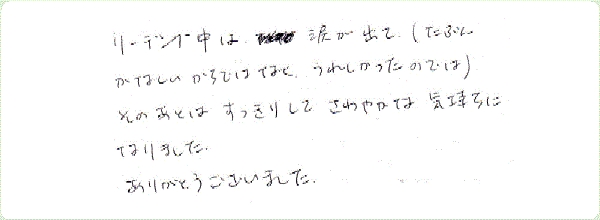 リーディング中は 涙が出て、(たぶん
かなしいからではなく、うれしかったのでは)
そのあとは すっきりして さわやかな 気持ちに
なりました。
ありがとうございました。